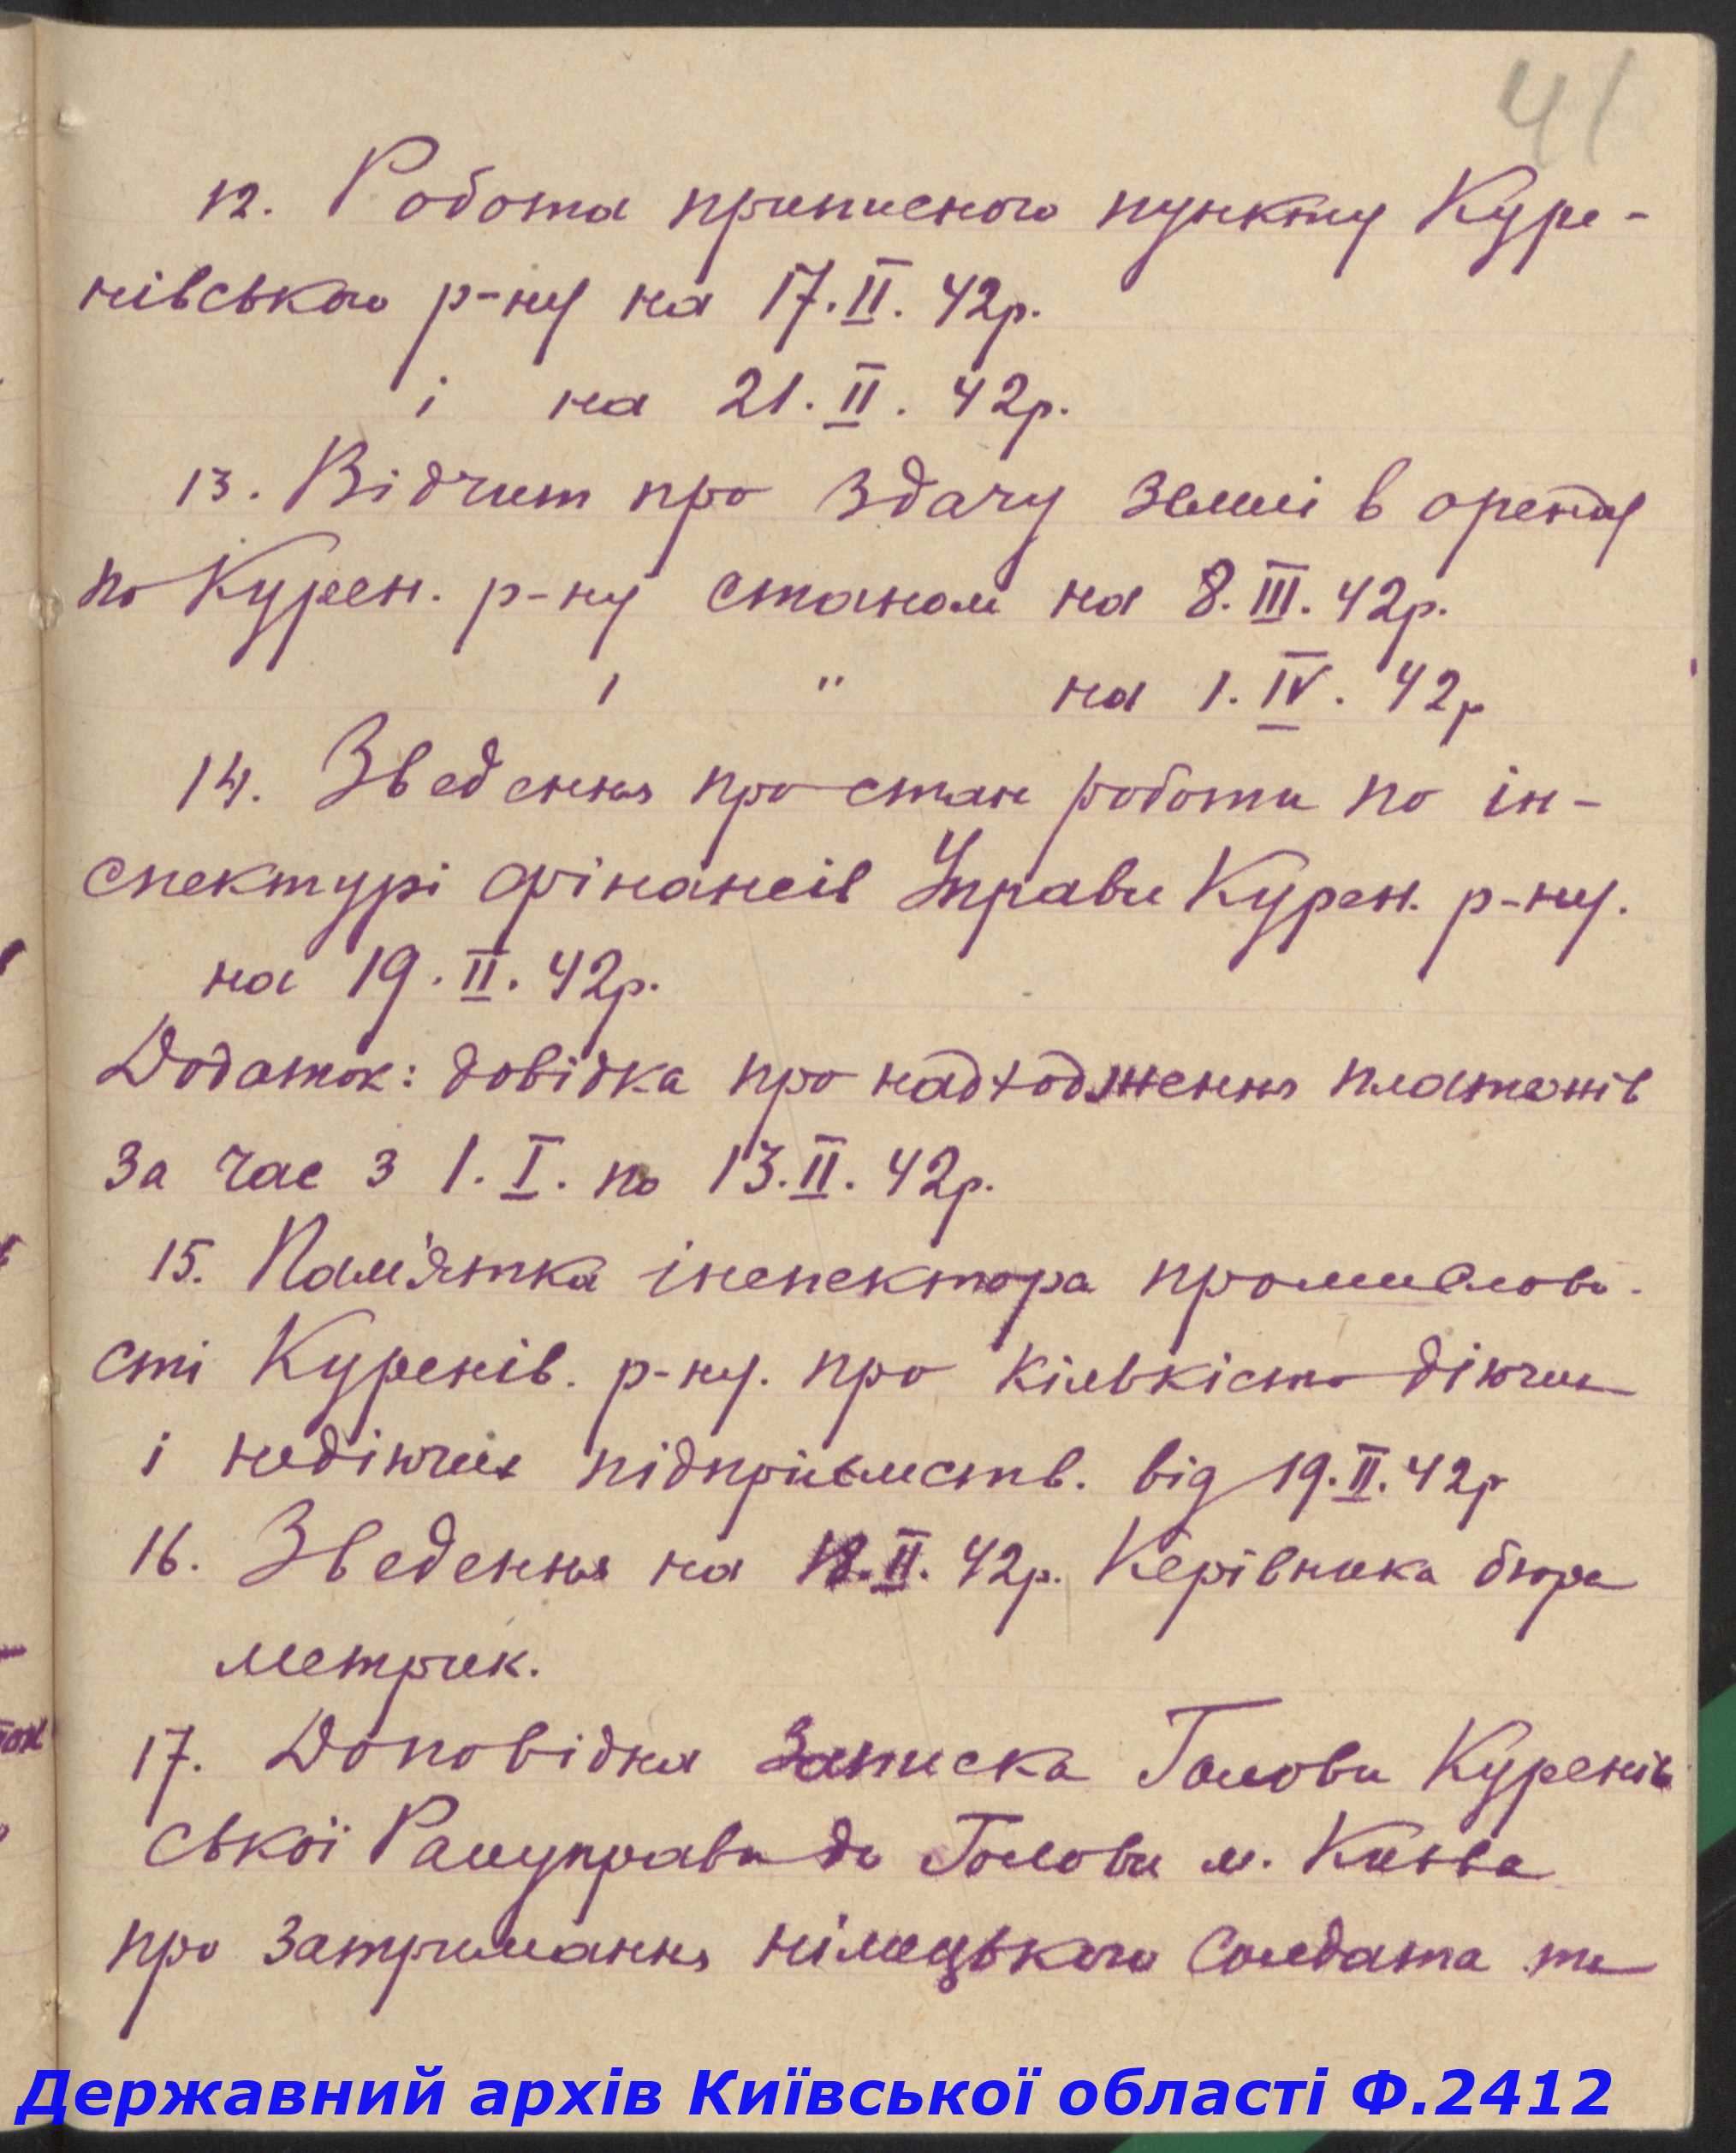 41
12. Робота приписного пункту Куре-
нівського р-ну на 17.II.42р.
і на 21.II.42р.
13. Відчит про здачу землі в оренду
по Курен. р-ну станом на 8.III.42р.
і " на 1.IV.42р
14. Зведення про стан роботи по ін-
спектурі фінансів Управи Курен. р-ну.
на 19.II.42р.
Додаток: довідка про надходження платежів
за час з 1.I. по 13.II.42р.
15. Пам'ятка інспектора промислово-
сті Куренів. р-ну. про кількість діючих
і недіючих підприємств. від 19.II.42р
16. Зведення на 18.II.42р. Керівника бюра
метрик.
17. Доповідна Записка Голови Куренів
ської Райуправи до Голови м. Києва
про затримання німецького солдата та
Державний архів Київської області Ф.2412